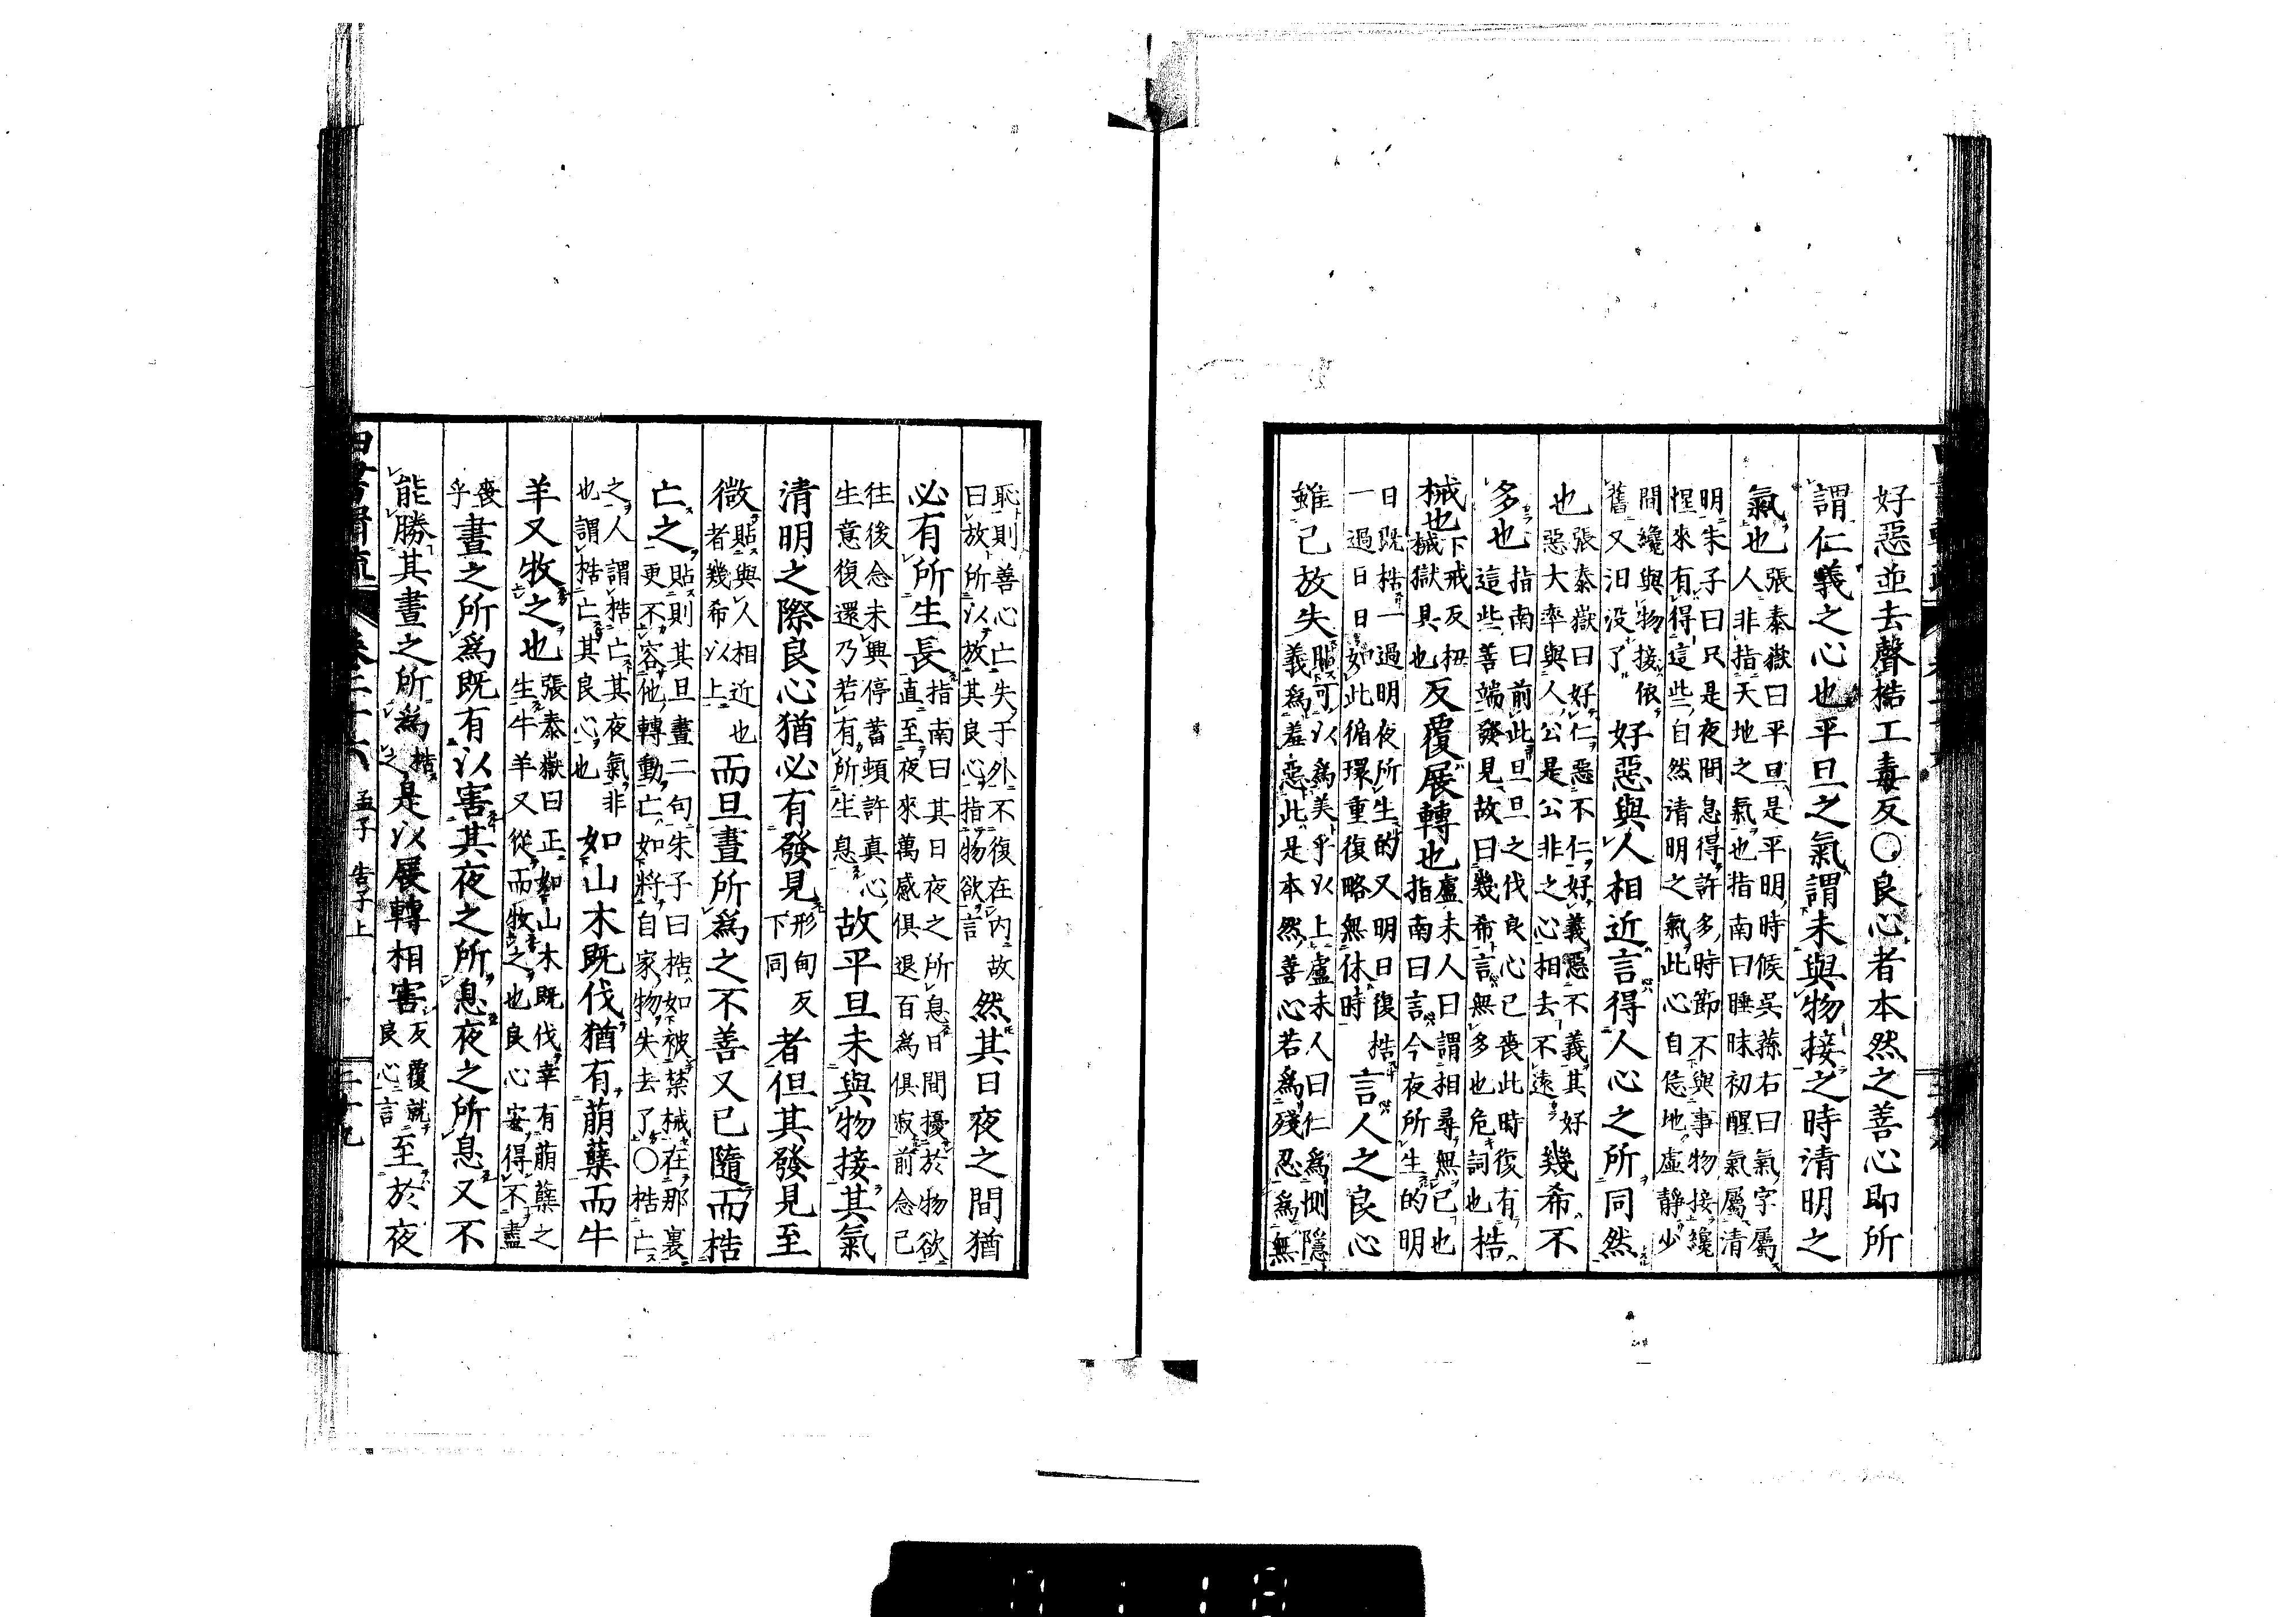 好惡並去聲梏工毒反○良心者本然之善心即所
謂仁義之心也平旦之氣謂未與物接之時清明之
氣也張泰嶽曰平旦是平明時候吳蓀右曰氣字屬
人非指天地之氣也指南曰睡昧初醒氣屬清
明朱子曰只是夜間息得許多時節不與事物接纔
惺來有得這些自然清明之氣此心自恁地虛靜少
間纔與物接依
舊又汩没了
好惡與人相近言得人心之所同然
也張泰嶽曰好仁惡不仁好義惡不義其好
惡大率與人公是公非之心相去不遠
幾希不
多也指南曰前此旦旦之伐良心已喪此時復有
這些善端發見故曰幾希言無多也危詞也
梏
械也下戒反杻
械獄具也
反覆展轉也盧未人曰謂相尋無已也
指南曰言今夜所生的明
日既梏一過明夜所生的又明日復梏
一過日日如此循環重復略無休時
言人之良心
雖已放失貼可以為美乎以上盧未人曰仁為惻隱
義為羞惡此是本然善心若為殘忍為無
恥則善心亡失于外不復在内故
曰放所以放其良心指物欲言
然其日夜之間猶
必有所生長指南曰其日夜之所息日間擾於物欲
直至夜來萬感俱退百為俱寂前念已
往後念未興停蓄頓許真心
生意復還乃若有所生息
故平旦未與物接其氣
清明之際良心猶必有發見形甸反
下同
者但其發見至
微貼與人相近也
者幾希以上
而旦晝所為之不善又已隨而梏
亡之貼則其旦晝二句朱子曰梏如被禁械在那裏
更不容他轉動亡如將自家物失去了○梏亡
之人謂梏亡其夜氣非
也謂梏亡其良心也
如山木既伐猶有萌蘖而牛
羊又牧之也張泰嶽曰正如山木既伐幸有萌蘖之
生牛羊又從而牧之也良心安得不盡
喪
乎
晝之所為既有以害其夜之所息夜之所息又不
能勝其晝之所為梏
之
是以展轉相害反覆就
良心言
至於夜
孟子 告子上